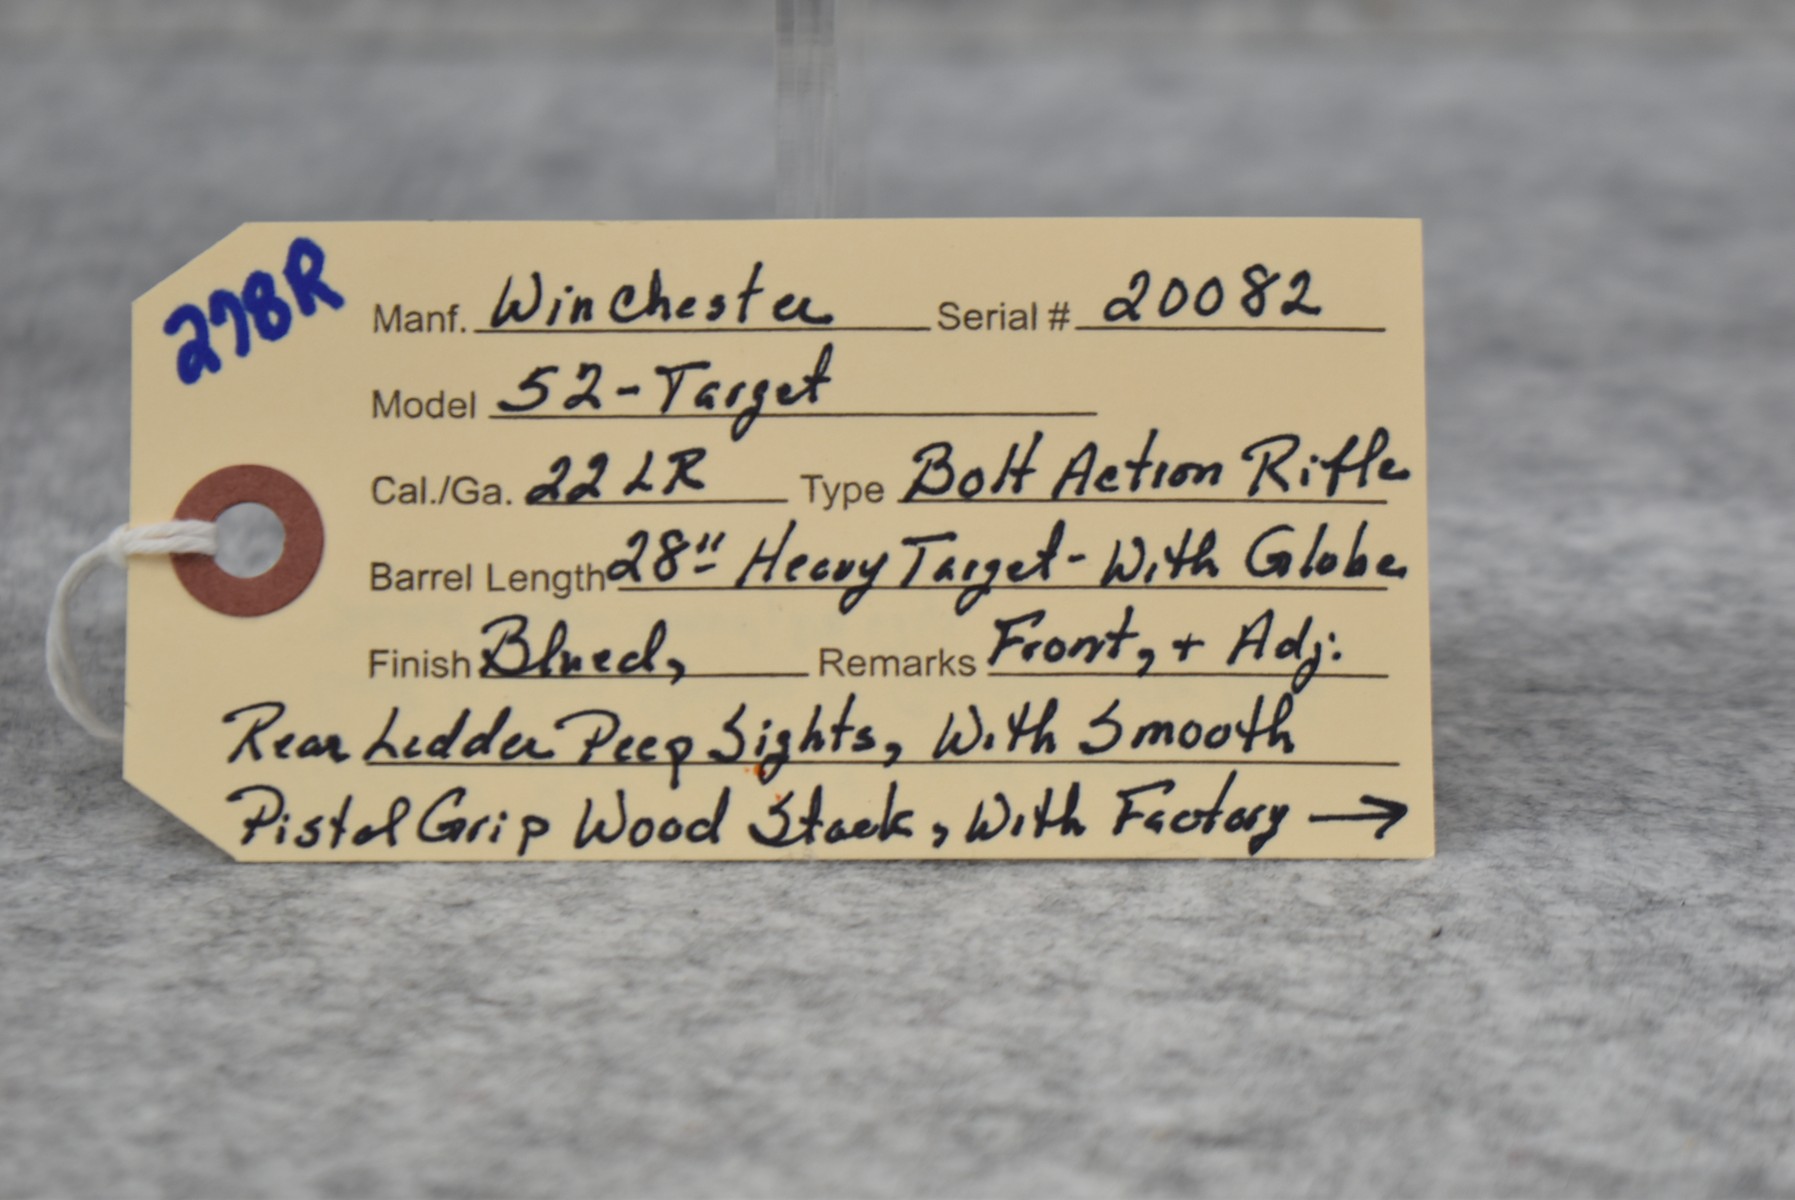 278R
Manf. Winchester Serial # 20082
Model 52-Target
Cal./Ga. 22 LR Type Bolt Action Rifle
Barrel Length 28" Heavy Target - With Globe
Finish Blued, Remarks Front, + Adj.
Rear Ladder Peep Sights, With Smooth
Pistol Grip Wood Stock, With Factory →